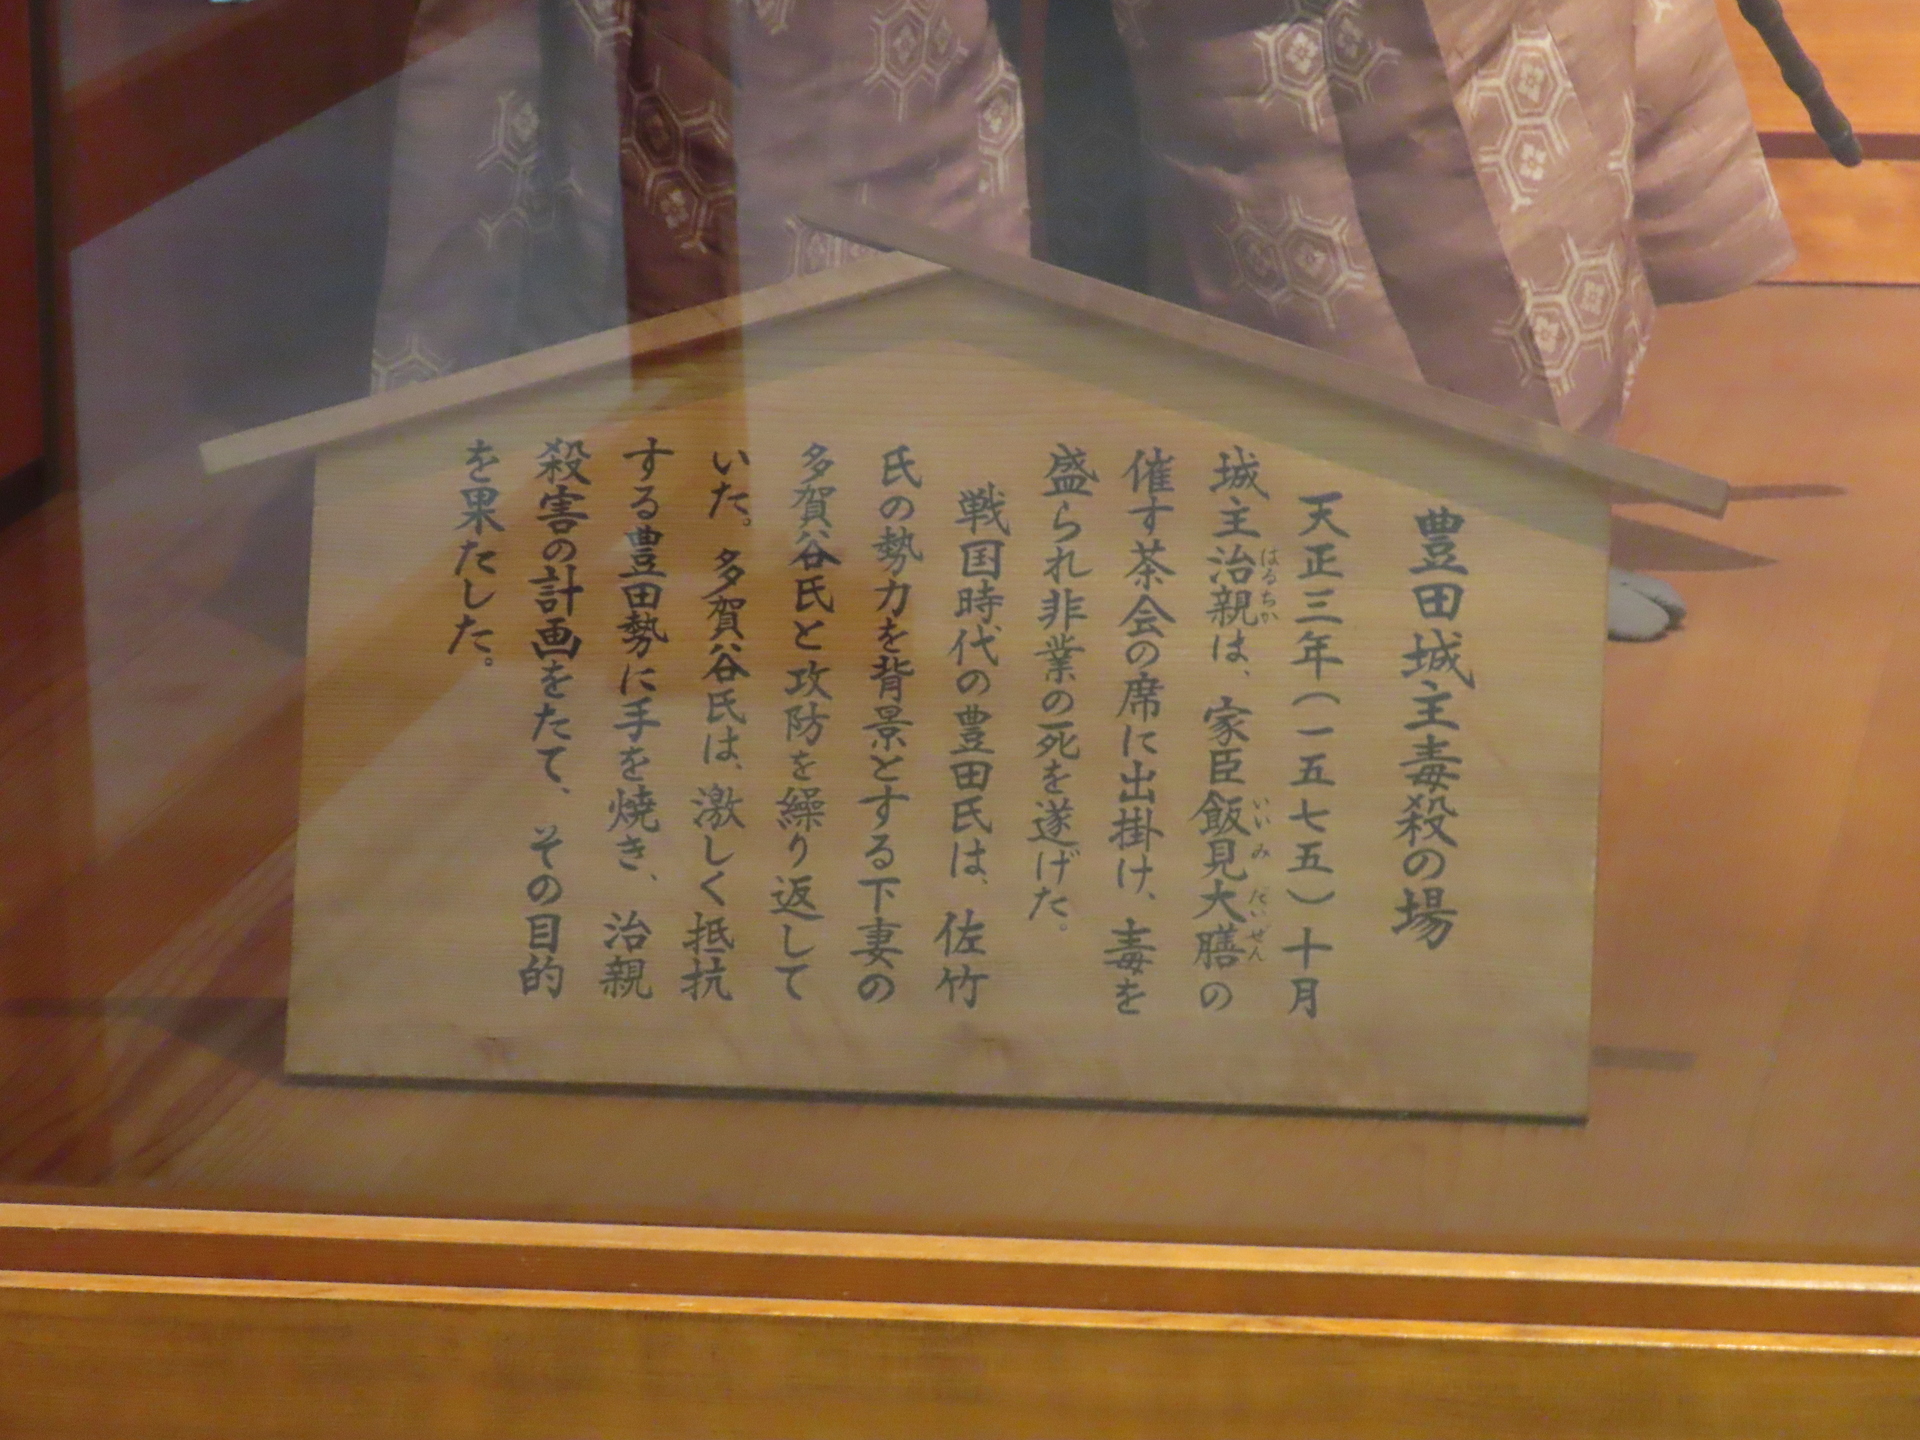 豊田城主毒殺の場
天正三年(一五七五)十月
城主治親は、家臣飯見大膳の
はるちか
いいみ だいぜん
催す茶会の席に出掛け、毒を
盛られ非業の死を遂げた。
戦国時代の豊田氏は、佐竹
氏の勢力を背景とする下妻の
多賀谷氏と攻防を繰り返して
いた。多賀谷氏は、激しく抵抗
する豊田勢に手を焼き、治親
殺害の計画をたて、その目的
を果たした。